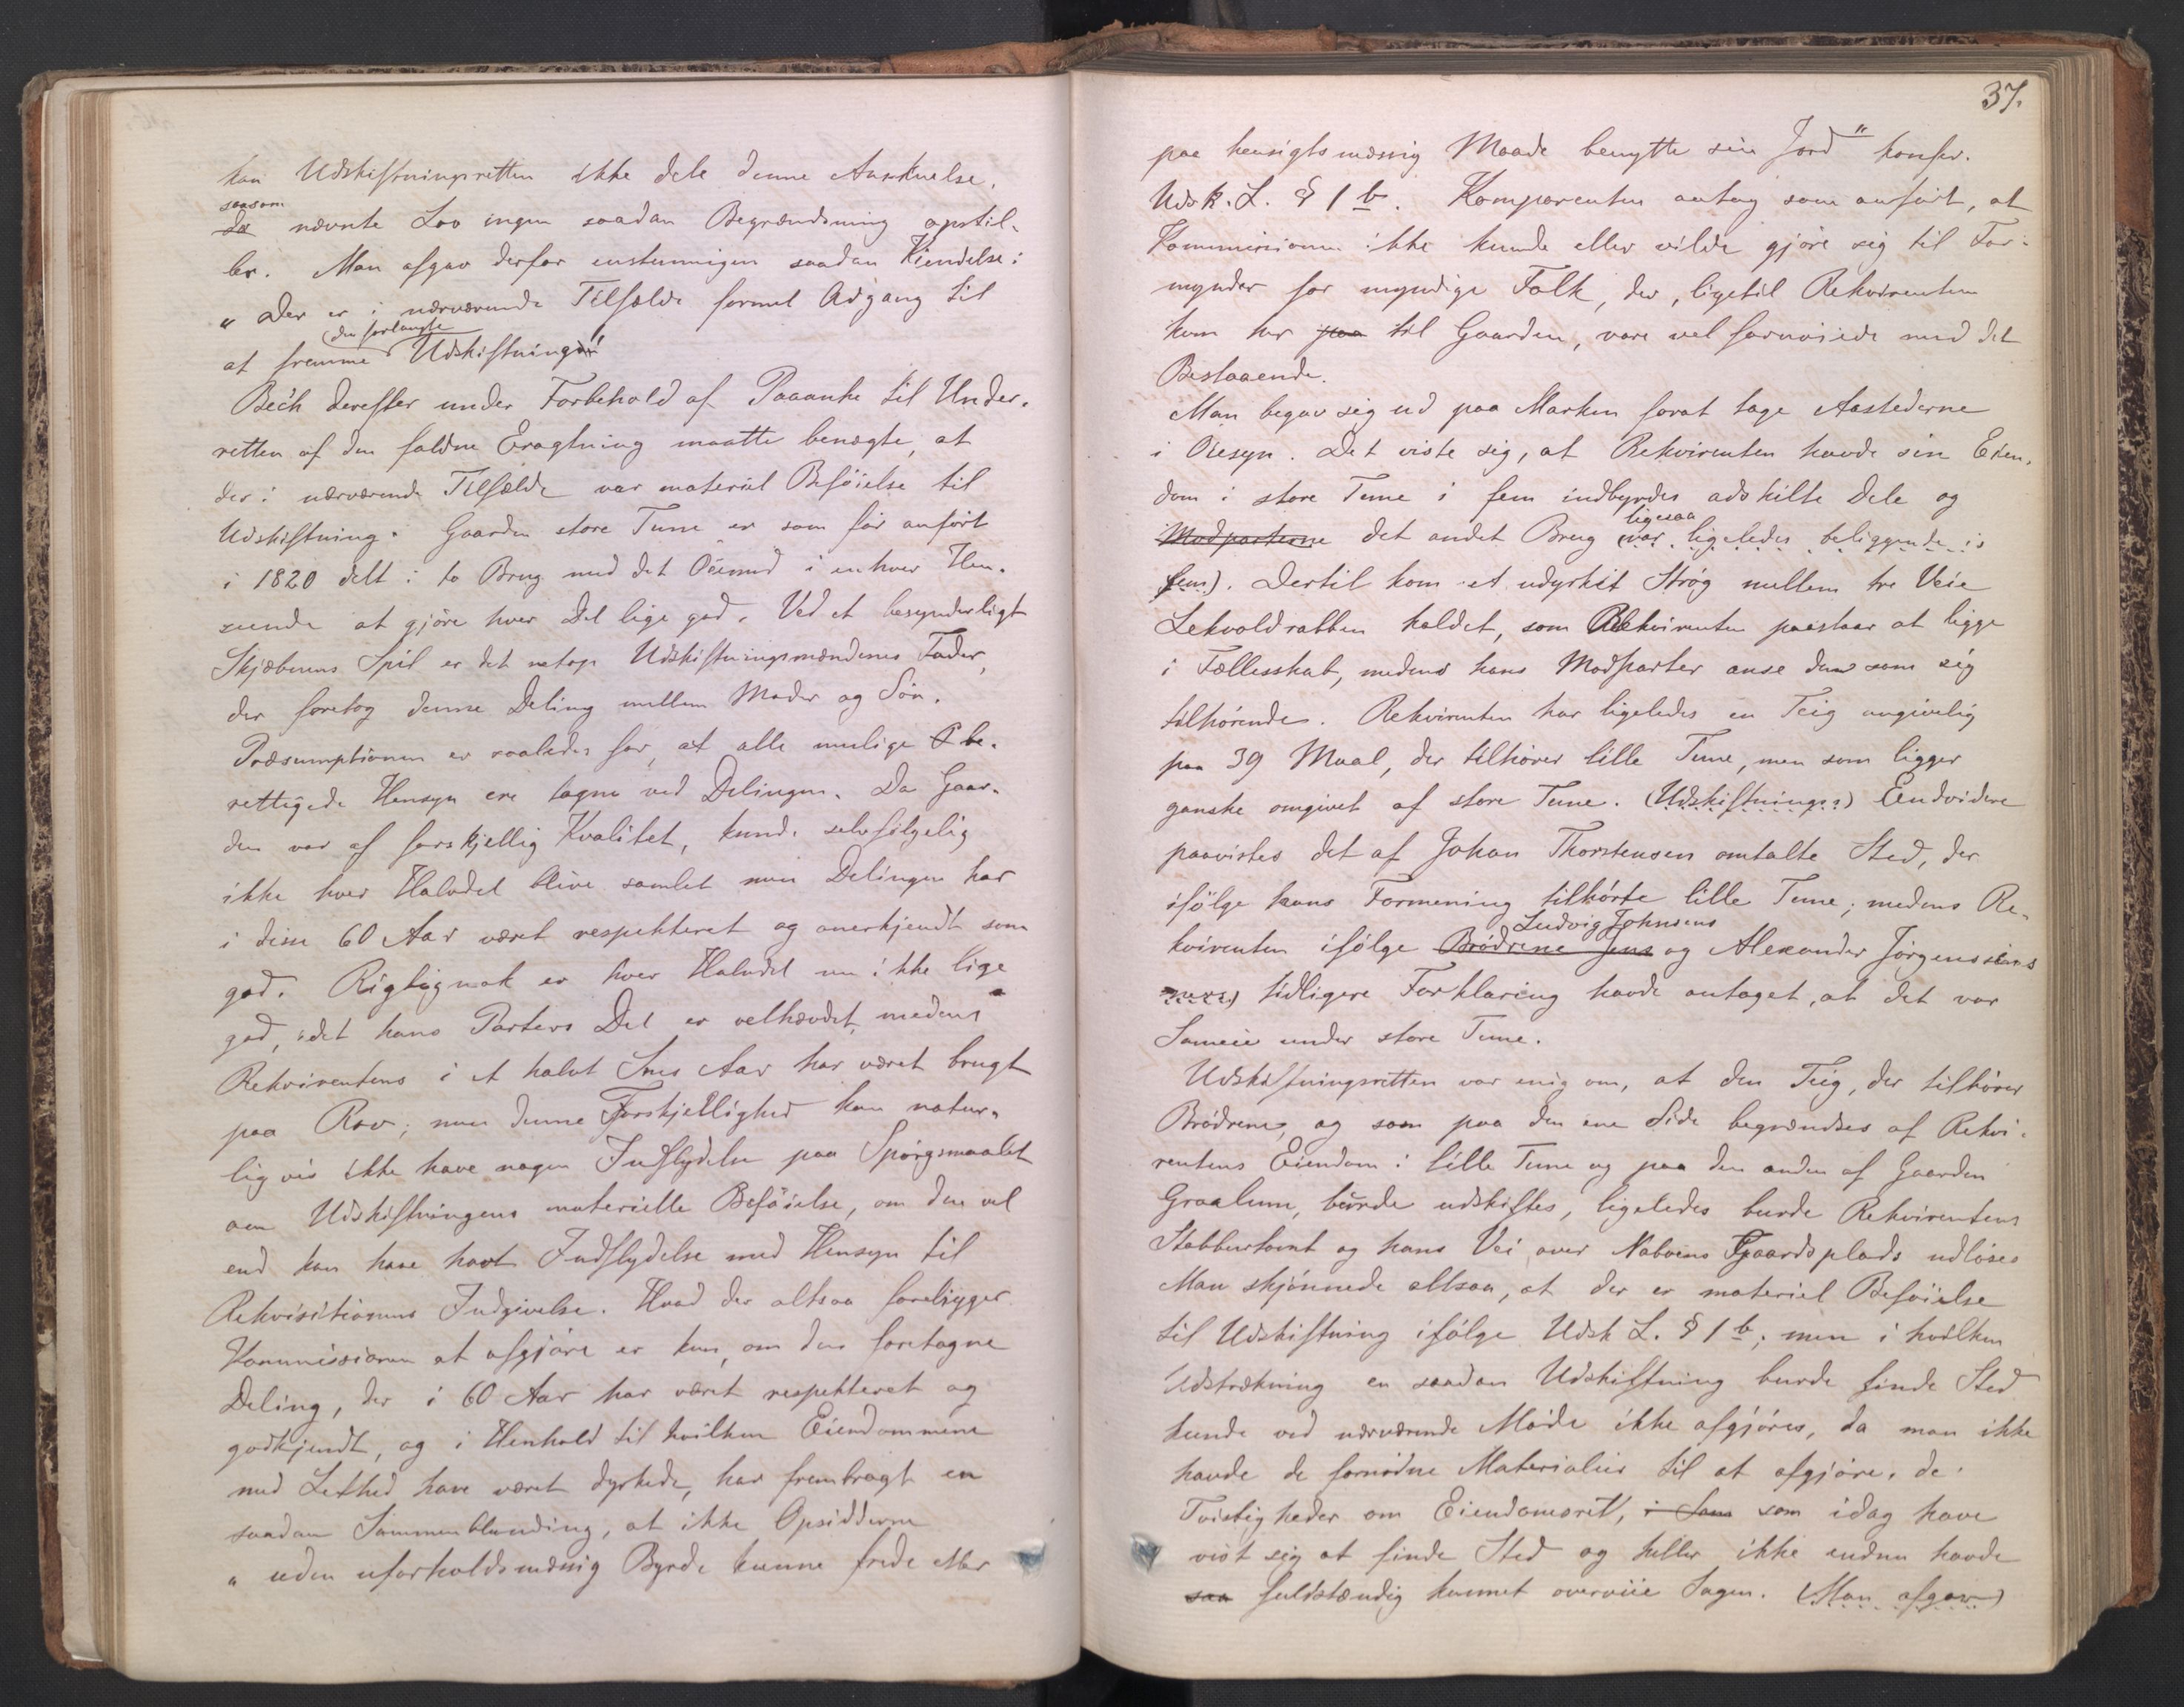 kan Udskiftningsretten ikke dele denne Anskuelse,
saasom
da nævnte Lov ingen saadan Begrændsning opstil-
ler. Man afgav derfor enstemmigen saadan Kjendelse:
"Der er i nærværende Tilfælde formel Adgang til
(den forlangte
at fremme Udskiftningen!
Bech derefter under Forbehold af Paaanke til Under-
retten af den faldne Eragtning maatte benægte, at
der i nærværende Tilfælde var materiel Beføielse til
Udskiftning. Gaarden store Tune er som før anført
i 1820 delt i to Brug med det Öiemed i enhver Hen-
seende at gjöre hver Del lige god. Ved et besynderligt
Skjæbnens Spil er det netop Udskiftningsmændenes Fader,
der foretog denne Deling mellem Moder og Sön.
Præsumptionen er saaledes for, at alle mulige be-
rettigede Hensyn ere tagne ved Delingen. Da Gaar-
den var af forskjellig Kvalitet, kunde selvfølgelig
ikke hver Halvdel blive samlet men Delingen har
i disse 60 Aar været respekteret og anerkjendt som
god. Rigtignok er hver Halvdel nu ikke lige
god, idet hans Parters Del er velhævdet, medens
Rekvirentens i et halvt Snes Aar har været brugt
paa Rov; men denne Forskjellighed kan natur-
ligvis ikke have nogen Indflydelse paa Spørgsmaalet
om Udskiftningens materielle Beföielse, om den vel
end kan have havt Indflydelse med Hensyn til
Rekvisitionens Indgivelse. Hvad der altsaa foreligger
Kommissionen at afgjöre er kun, om den foretagne
Deling, der i 60 Aar har været respekteret og
godkjendt, og i Henhold til hvilken Eiendommene
med Lethed have været dyrkede, har frembragt en
saadan Sammenblanding, at ikke Opsidderne
"uden uforholdsmæssig Byrde kunne frede eller
37.
paa hensigtsmæssig Maade benytte sin Jord" konfer.
Udsk. L. § 1 b. Komparenten antog som anfört, at
Kommissionen ikke kunde eller vilde gjöre sig til For-
mynder for myndige Folk, der, ligetil Rekvirenten
kom her paa til Gaarden, vare vel fornöiede med det
Bestaaende.
Man begav sig ud paa Marken forat tage Aastederne
i Öiesyn. Det viste sig, at Rekvirenten havde sin Eien-
dom i store Tune i fem indbyrdes adskilte Dele og
ligesaa
Modparterne det andet Brug (var ligeledes beliggende i
fem). Dertil kom et udyrket Strøg mellem tre Veie
Lekvoldrabben kaldet, som Rekvirenten paastaar at ligge
i Fællesskab, medens hans Modparter anse den som sig
tilhörende. Rekvirenten har ligeledes en Teig angivelig
paa 39 Maal, der tilhörer lille Tune, men som ligger
ganske omgivet af store Tune. (Udskiftnings) Endvidere
paavistes det af Johan Thorstensen omtalte Sted, der
ifölge hans Formening tilhörte lille Tune; medens Re-
Ludvig Johnsens
kvirenten ifölge Brödrene Jens og Alexander Jörgensens
tidligere Forklaring havde antaget, at det var
Sameie under store Tune.
Udskiftningsretten var enig om, at den Teig, der tilhörer
Brödrene, og som paa den ene Side begrændses af Rekvi-
rentens Eiendom i lille Tune og paa den anden af Gaarden
Graalum, burde udskiftes, ligeledes burde Rekvirentens
Stabburtomt og hans Vei over Naboens Gaardsplads udlöses
Man skjönnede altsaa, at der er materiel Beföielse
til Udskiftning ifölge Udsk L. § 1 b; men i hvilken
Udstrækning en saadan Udskiftning burde finde Sted
kunde ved nærværende Möde ikke afgjöres, da man ikke
havde de fornödne Materialier til at afgjöre de
Tvistigheder om Eiendomsret, i Sam som idag have
vist sig at finde Sted og heller ikke endnu havde
saa fuldstændig kunnet overveie Sagen. (Man afgav)